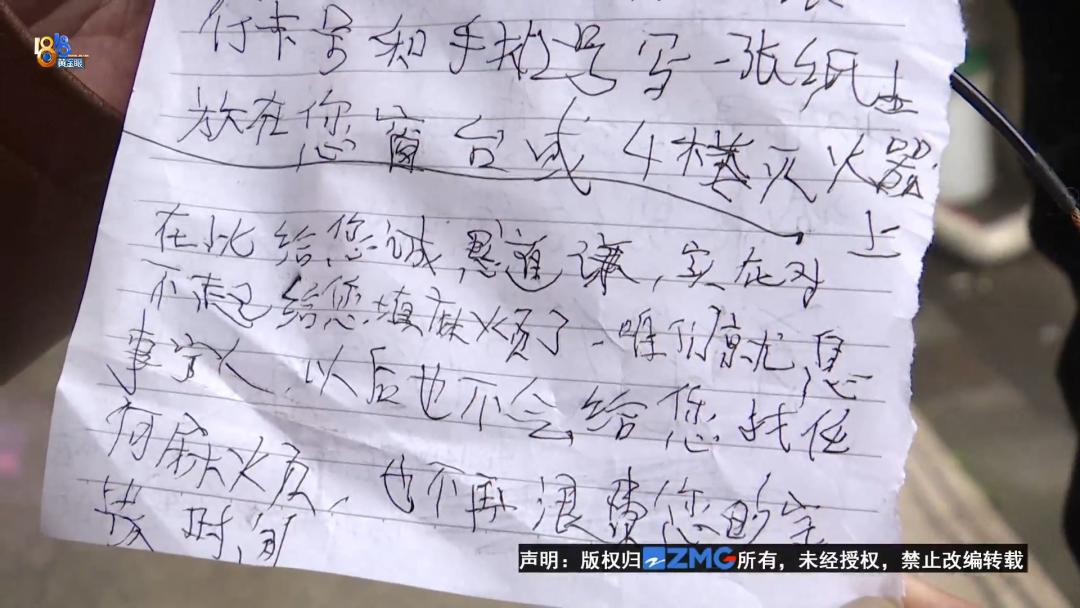 1818
黄金眼
行卡号和手机号写一张纸上
放在您窗台或4楼灭火器
上
在此给您诚恳道谦,实在对
不起给您填麻烦了、咱们就息
事宁人、以后也不会给您找任
何麻烦、也不再浪费您的宝
贵时间
声明：版权归ZMG所有，未经授权，禁止改编转载